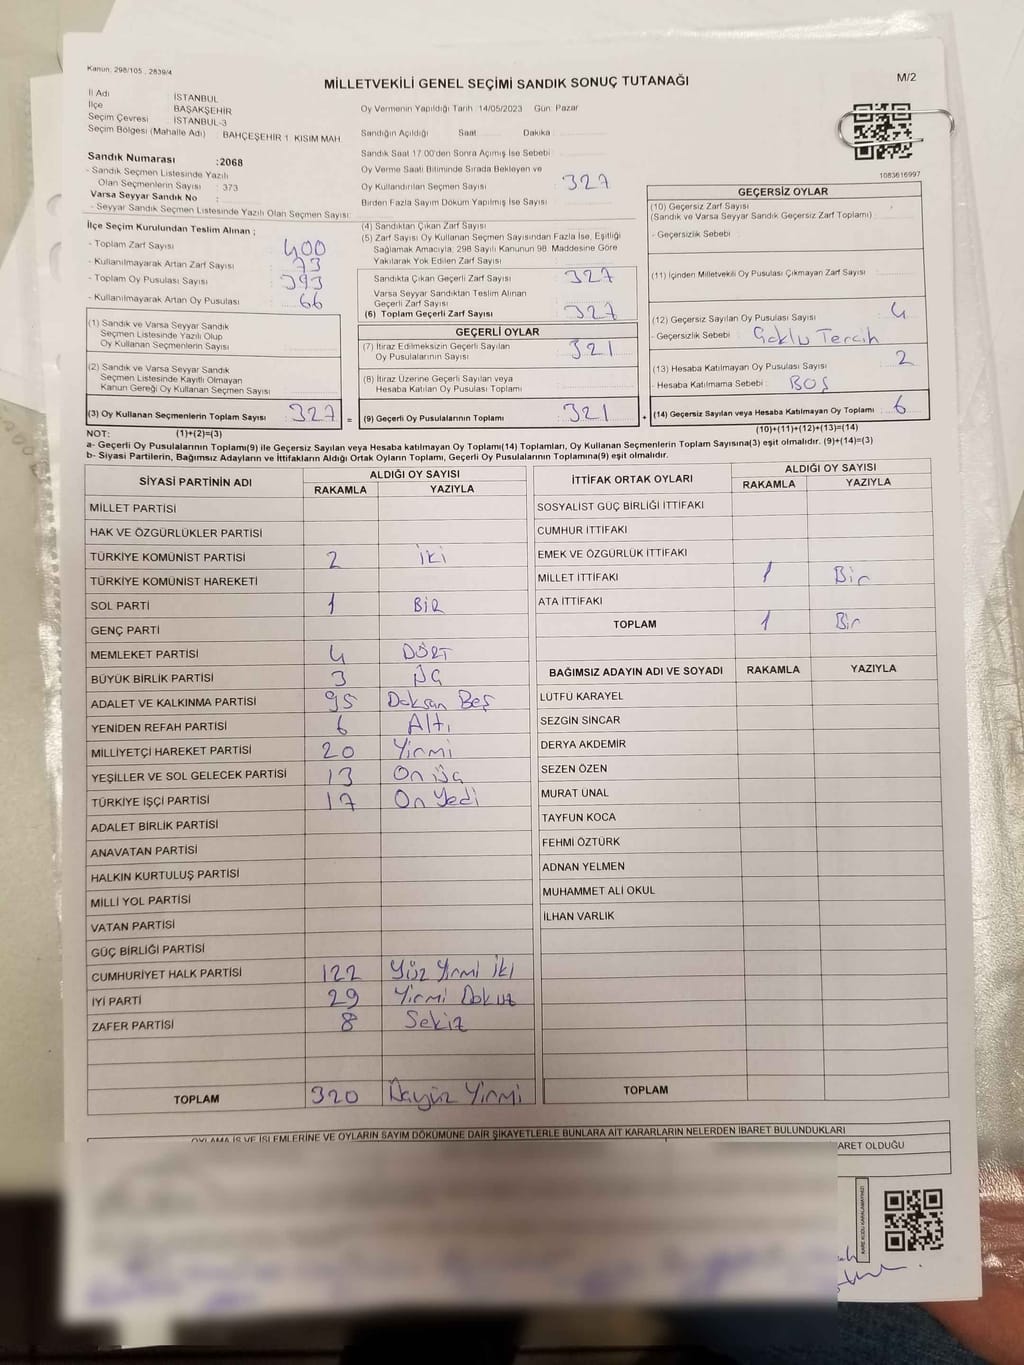 Kanun, 298/105 , 2839/4
MİLLETVEKİLİ GENEL SEÇİMİ SANDIK SONUÇ TUTANAĞI
M/2
İl Adı İSTANBUL
İlçe BAŞAKŞEHİR
Seçim Çevresi İSTANBUL-3
Seçim Bölgesi (Mahalle Adı) : BAHÇEŞEHİR 1. KISIM MAH.
Sandık Numarası :2068
- Sandık Seçmen Listesinde Yazılı
Olan Seçmenlerin Sayısı : 373
Varsa Seyyar Sandık No :
- Seyyar Sandık Seçmen Listesinde Yazılı Olan Seçmen Sayısı:
Oy Vermenin Yapıldığı Tarih 14/05/2023 Gün: Pazar
Sandığın Açıldığı Saat Dakika
Sandık Saat 17.00'den Sonra Açımış İse Sebebi :
Oy Verme Saati Bitiminde Sırada Bekleyen ve
Oy Kullandırılan Seçmen Sayısı : 327
Birden Fazla Sayım Döküm Yapılmış İse Sayısı :
1083616997
İlçe Seçim Kurulundan Teslim Alınan ;
- Toplam Zarf Sayısı : 400
- Kullanılmayarak Artan Zarf Sayısı : 73
- Toplam Oy Pusulası Sayısı : 393
- Kullanılmayarak Artan Oy Pusulası : 66
(1) Sandık ve Varsa Seyyar Sandık
Seçmen Listesinde Yazılı Olup
Oy Kullanan Seçmenlerin Sayısı
(2) Sandık ve Varsa Seyyar Sandık
Seçmen Listesinde Kayıtlı Olmayan
Kanun Gereği Oy Kullanan Seçmen Sayısı
(3) Oy Kullanan Seçmenlerin Toplam Sayısı : 327 =
(4) Sandıktan Çıkan Zarf Sayısı
(5) Zarf Sayısı Oy Kullanan Seçmen Sayısından Fazla İse, Eşitliği
Sağlamak Amacıyla, 298 Sayılı Kanunun 98. Maddesine Göre
Yakılarak Yok Edilen Zarf Sayısı
Sandıkta Çıkan Geçerli Zarf Sayısı : 327
Varsa Seyyar Sandıktan Teslim Alınan
Geçerli Zarf Sayısı
(6) Toplam Geçerli Zarf Sayısı : 327
GEÇERLİ OYLAR
(7) İtiraz Edilmeksizin Geçerli Sayılan
Oy Pusulalarının Sayısı : 321
(8) İtiraz Üzerine Geçerli Sayılan veya
Hesaba Katılan Oy Pusulası Toplamı
(9) Geçerli Oy Pusulalarının Toplamı : 321 +
GEÇERSİZ OYLAR
(10) Geçersiz Zarf Sayısı
(Sandık ve Varsa Seyyar Sandık Geçersiz Zarf Toplamı) :
- Geçersizlik Sebebi :
(11) İçinden Milletvekili Oy Pusulası Çıkmayan Zarf Sayısı :
(12) Geçersiz Sayılan Oy Pusulası Sayısı : 4
- Geçersizlik Sebebi : Çoklu Tercih
(13) Hesaba Katılmayan Oy Pusulası Sayısı : 2
- Hesaba Katılmama Sebebi : BOŞ
(14) Geçersiz Sayılan veya Hesaba Katılmayan Oy Toplamı : 6
NOT: (1)+(2)=(3)
(10)+(11)+(12)+(13)=(14)
a- Geçerli Oy Pusulalarının Toplamı(9) ile Geçersiz Sayılan veya Hesaba katılmayan Oy Toplamı(14) Toplamları, Oy Kullanan Seçmenlerin Toplam Sayısına(3) eşit olmalıdır. (9)+(14)=(3)
b- Siyasi Partilerin, Bağımsız Adayların ve İttifakların Aldığı Ortak Oyların Toplamı, Geçerli Oy Pusulalarının Toplamına(9) eşit olmalıdır.
SİYASİ PARTİNİN ADI
ALDIĞI OY SAYISI
RAKAMLA YAZIYLA
MİLLET PARTİSİ
HAK VE ÖZGÜRLÜKLER PARTİSİ
TÜRKİYE KOMÜNİST PARTİSİ 2 iki
TÜRKİYE KOMÜNİST HAREKETİ
SOL PARTİ 1 BİR
GENÇ PARTİ
MEMLEKET PARTİSİ 4 DÖRT
BÜYÜK BİRLİK PARTİSİ 3 Üç
ADALET VE KALKINMA PARTİSİ 95 Doksan Beş
YENİDEN REFAH PARTİSİ 6 Altı
MİLLİYETÇİ HAREKET PARTİSİ 20 Yirmi
YEŞİLLER VE SOL GELECEK PARTİSİ 13 On Üç
TÜRKİYE İŞÇİ PARTİSİ 17 On Yedi
ADALET BİRLİK PARTİSİ
ANAVATAN PARTİSİ
HALKIN KURTULUŞ PARTİSİ
MİLLİ YOL PARTİSİ
VATAN PARTİSİ
GÜÇ BİRLİĞİ PARTİSİ
CUMHURİYET HALK PARTİSİ 122 Yüz Yirmi İki
İYİ PARTİ 29 Yirmi Dokuz
ZAFER PARTİSİ 8 Sekiz
TOPLAM 320 Üçyüz Yirmi
İTTİFAK ORTAK OYLARI
ALDIĞI OY SAYISI
RAKAMLA YAZIYLA
SOSYALİST GÜÇ BİRLİĞİ İTTİFAKI
CUMHUR İTTİFAKI
EMEK VE ÖZGÜRLÜK İTTİFAKI
MİLLET İTTİFAKI 1 Bir
ATA İTTİFAKI
TOPLAM 1 Bir
BAĞIMSIZ ADAYIN ADI VE SOYADI RAKAMLA YAZIYLA
LÜTFÜ KARAYEL
SEZGİN SİNCAR
DERYA AKDEMİR
SEZEN ÖZEN
MURAT ÜNAL
TAYFUN KOCA
FEHMİ ÖZTÜRK
ADNAN YELMEN
MUHAMMET ALİ OKUL
İLHAN VARLIK
TOPLAM
OYLAMA İŞ VE İŞLEMLERİNE VE OYLARIN SAYIM DÖKÜMÜNE DAİR ŞİKAYETLERLE BUNLARA AİT KARARLARIN NELERDEN İBARET BULUNDUKLARI
ARET OLDUĞU